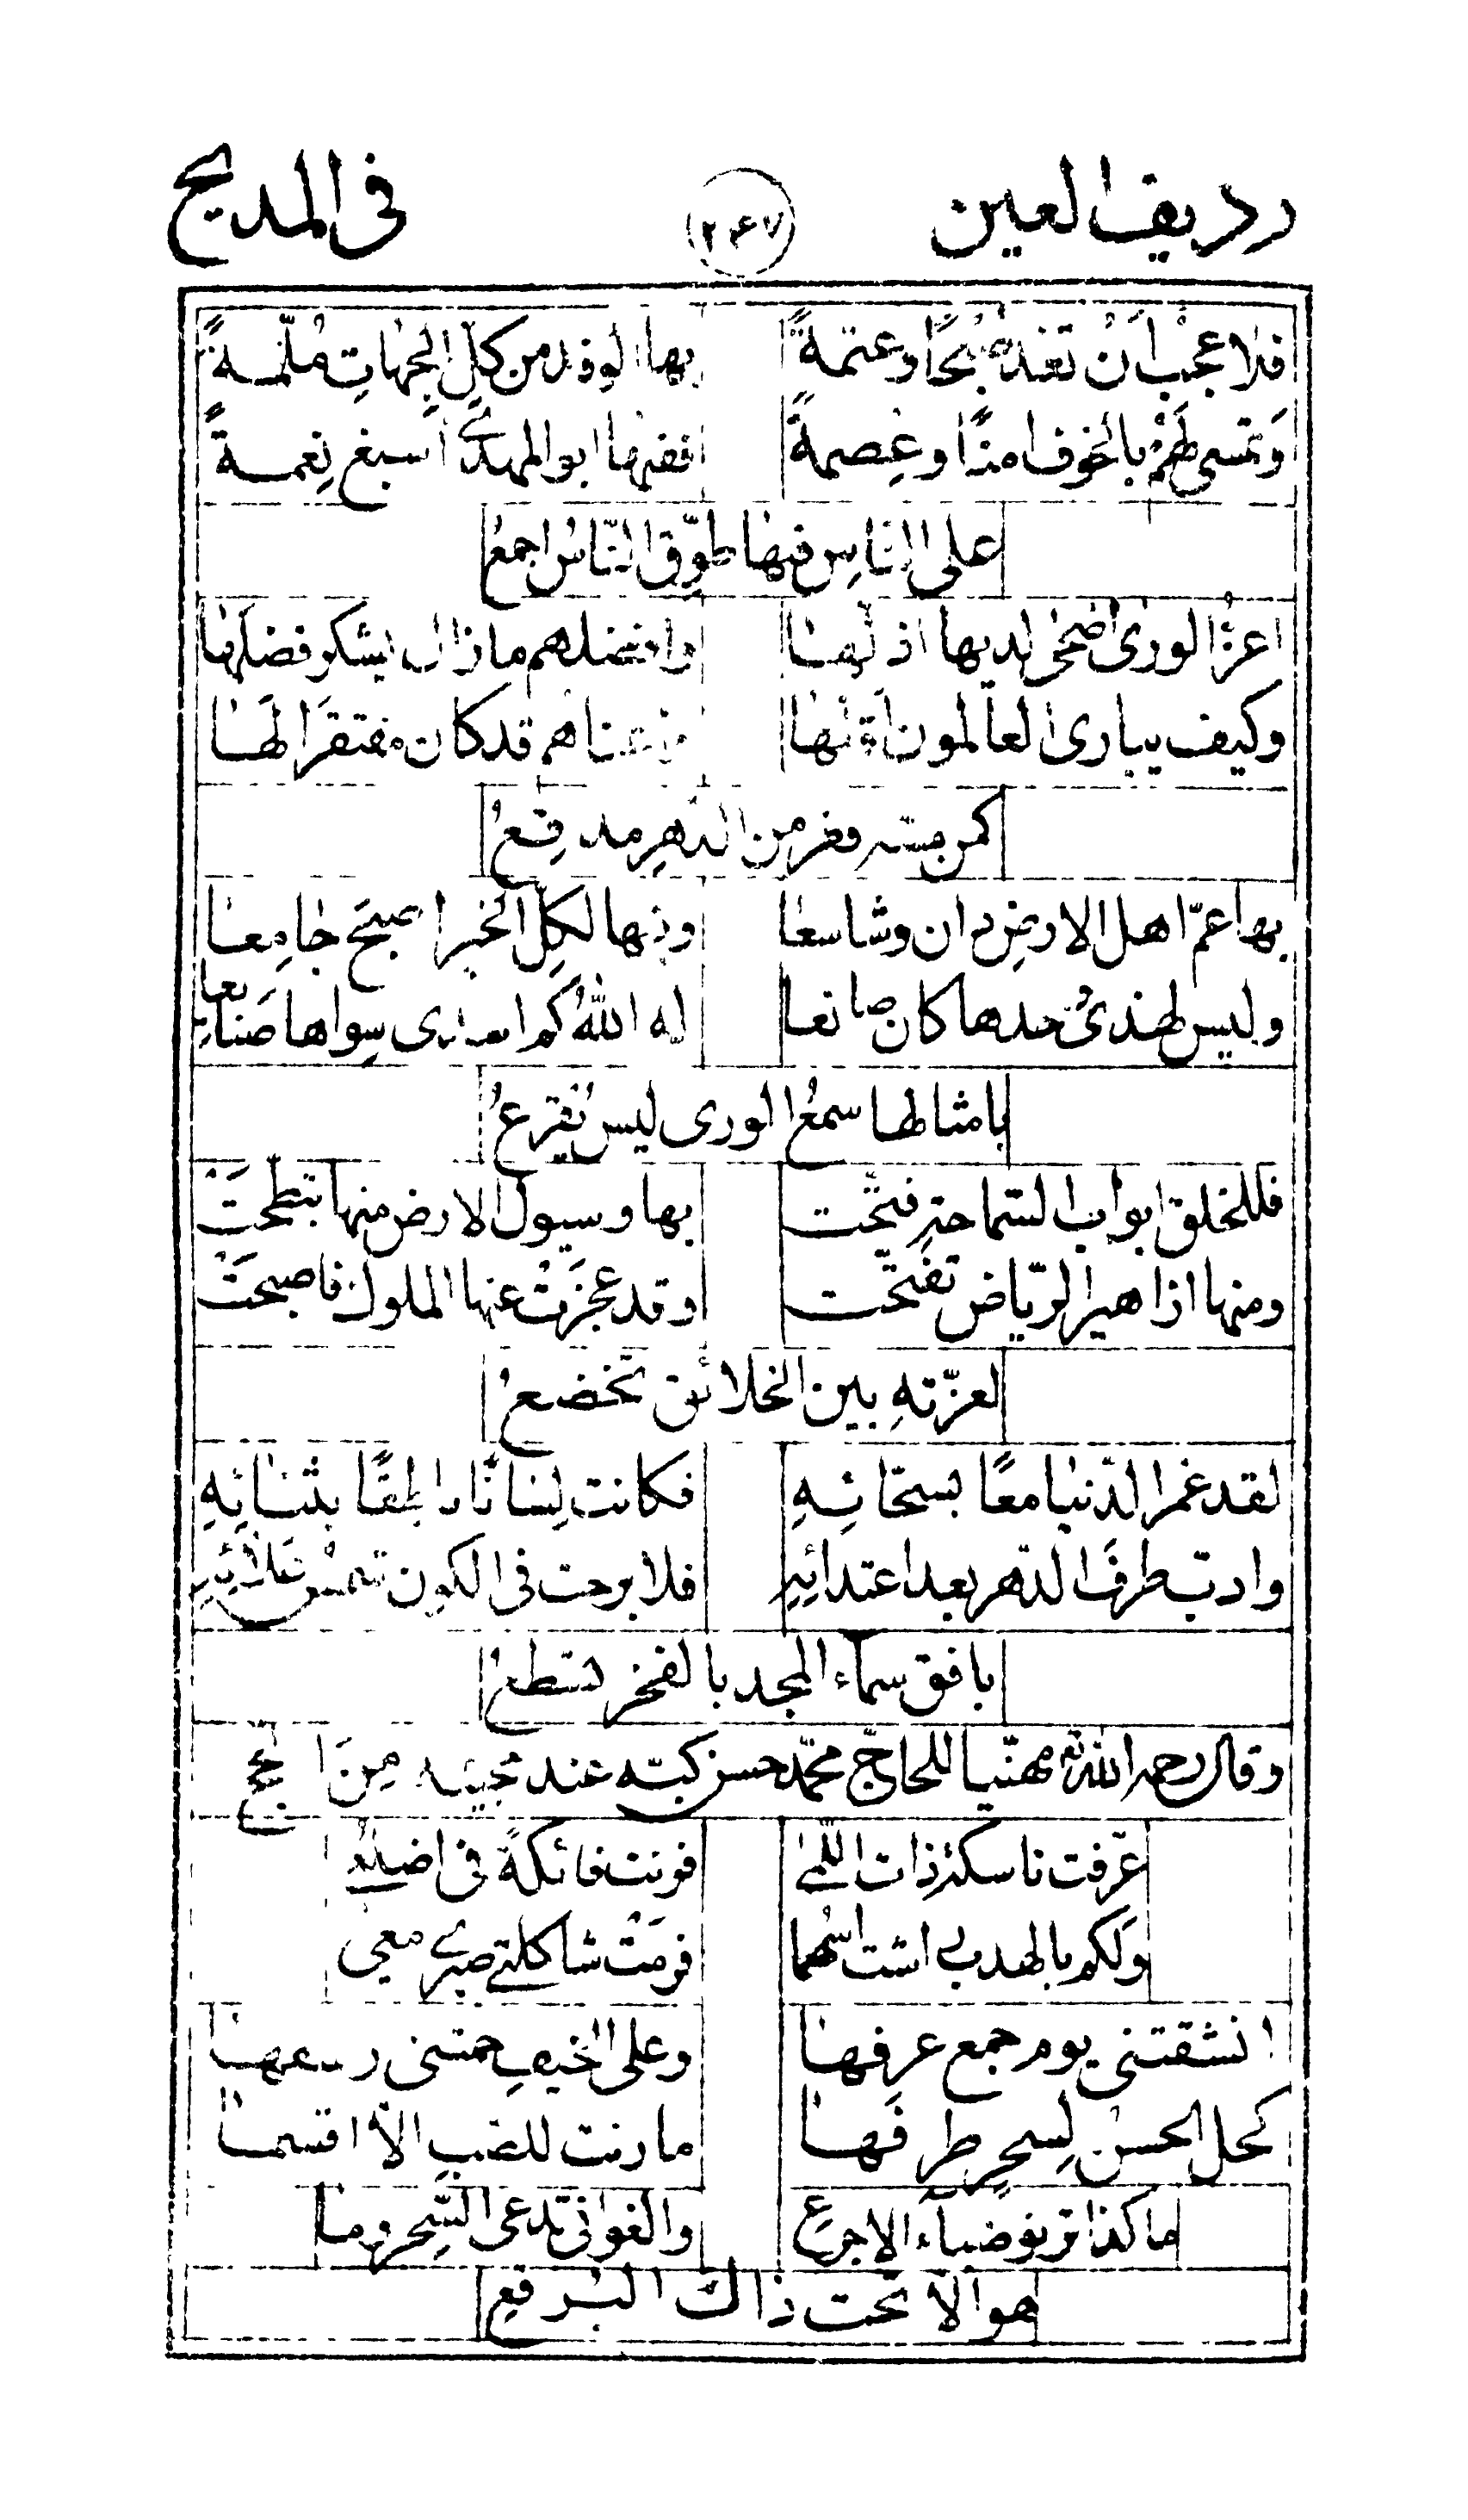 رديف العين ٢٤٧ في المديح
فلا عجبٌ أنْ تغد صُبحًا وعتمةً بها الوفد من كلِ الجهاتِ مُلمّةً
وَتمسى لهم بالخوف امنًا وعِصمةً ففيها ابو المهدي أسبغ نِعمةً
على الناسِ فيها طوِّق النّاسُ اجمعُ
اعزُّ الورى اضحى لديها اذلّها وافضلهم مازال يشكر فضلها
وكيف يبارى العالمون اقلّها غناهم قد كان مفتقرًا لها
كمن مسّه فقر من الدهرِ مدقِعُ
بها عمّ اهل الارضِ دانٍ وشاسعا وفيها لكلِ الخير اصبح جامِعا
وليس لهذى حدها كان صانعا له اللهُ كم اسدى سِواها صَنايعا
بامثالها سمعُ الورى ليس يُقرعُ
فللخلق ابواب السّماحةِ فتّحت بها وسيول الارض منها تبطّحتْ
ومنها ازاهير الرّياض تفتّحت وقد عجزَتْ عنها الملوك فاصبحتْ
لعزّتهِ بين الخلائق تخضعُ
لقد غمر الدّنيا معًا بسخائِهِ فكانت لِسانًا ناطِقًا بثنائِهِ
وادّب طرفَ الدّهر بعد اعتدائِهِ فلا برحت في الكونِ شمسُ عَلائِهِ
بافق سماء المجد بالفخر تسطعُ
وقال رحمه الله تع مهنّيا للحاجّ محمّد حسن كبّه عند مجيئه مِنَ الحج
عرّفت ناسكةً ذات اللّمى فرنت فاتكةً في اضلعي
وَلكم بالهدبِ اشت اسهُما فرمَتْ شاكلتي صبرى معي
انشقتنى يوم جمع عرفها وعلى الخيفِ حمتنى
كحل الحسن لِسحرٍ طرفَها ما رنت للضبى الّا اقسما
ما كذا ترنو ضباء الاجرعِ والغوانى تدعى السّحر وما
هو الّا تحت ذاك البرقعِ